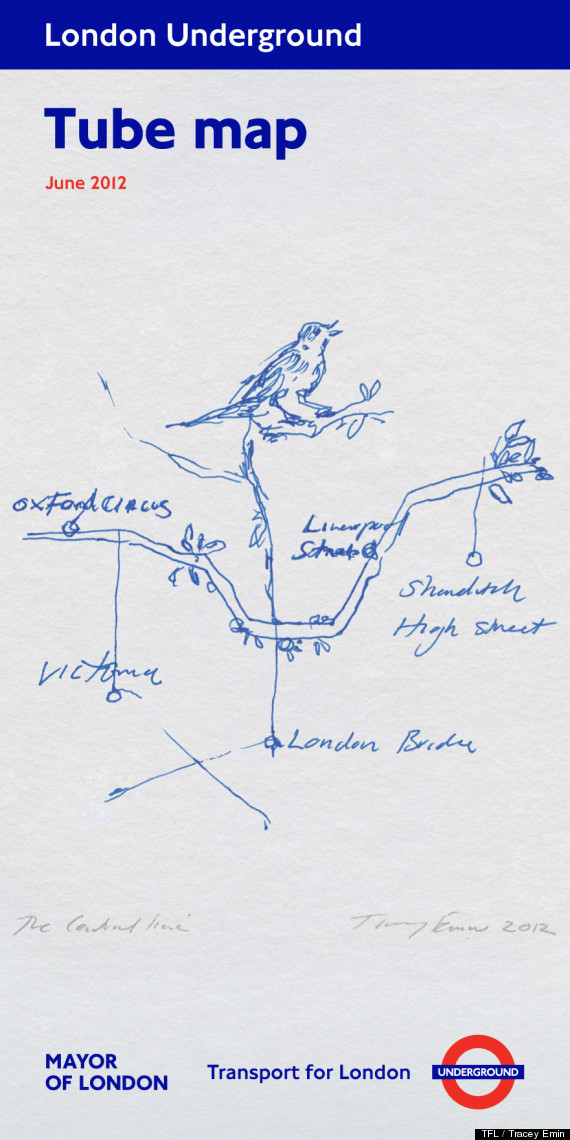 London Underground
Tube map
June 2012
Oxford Circus
Liverpool
Street
Shoreditch
High Street
Victoria
London Bridge
The Central line
Tracey Emin 2012
MAYOR
OF LONDON
Transport for London
UNDERGROUND
TFL / Tracey Emin